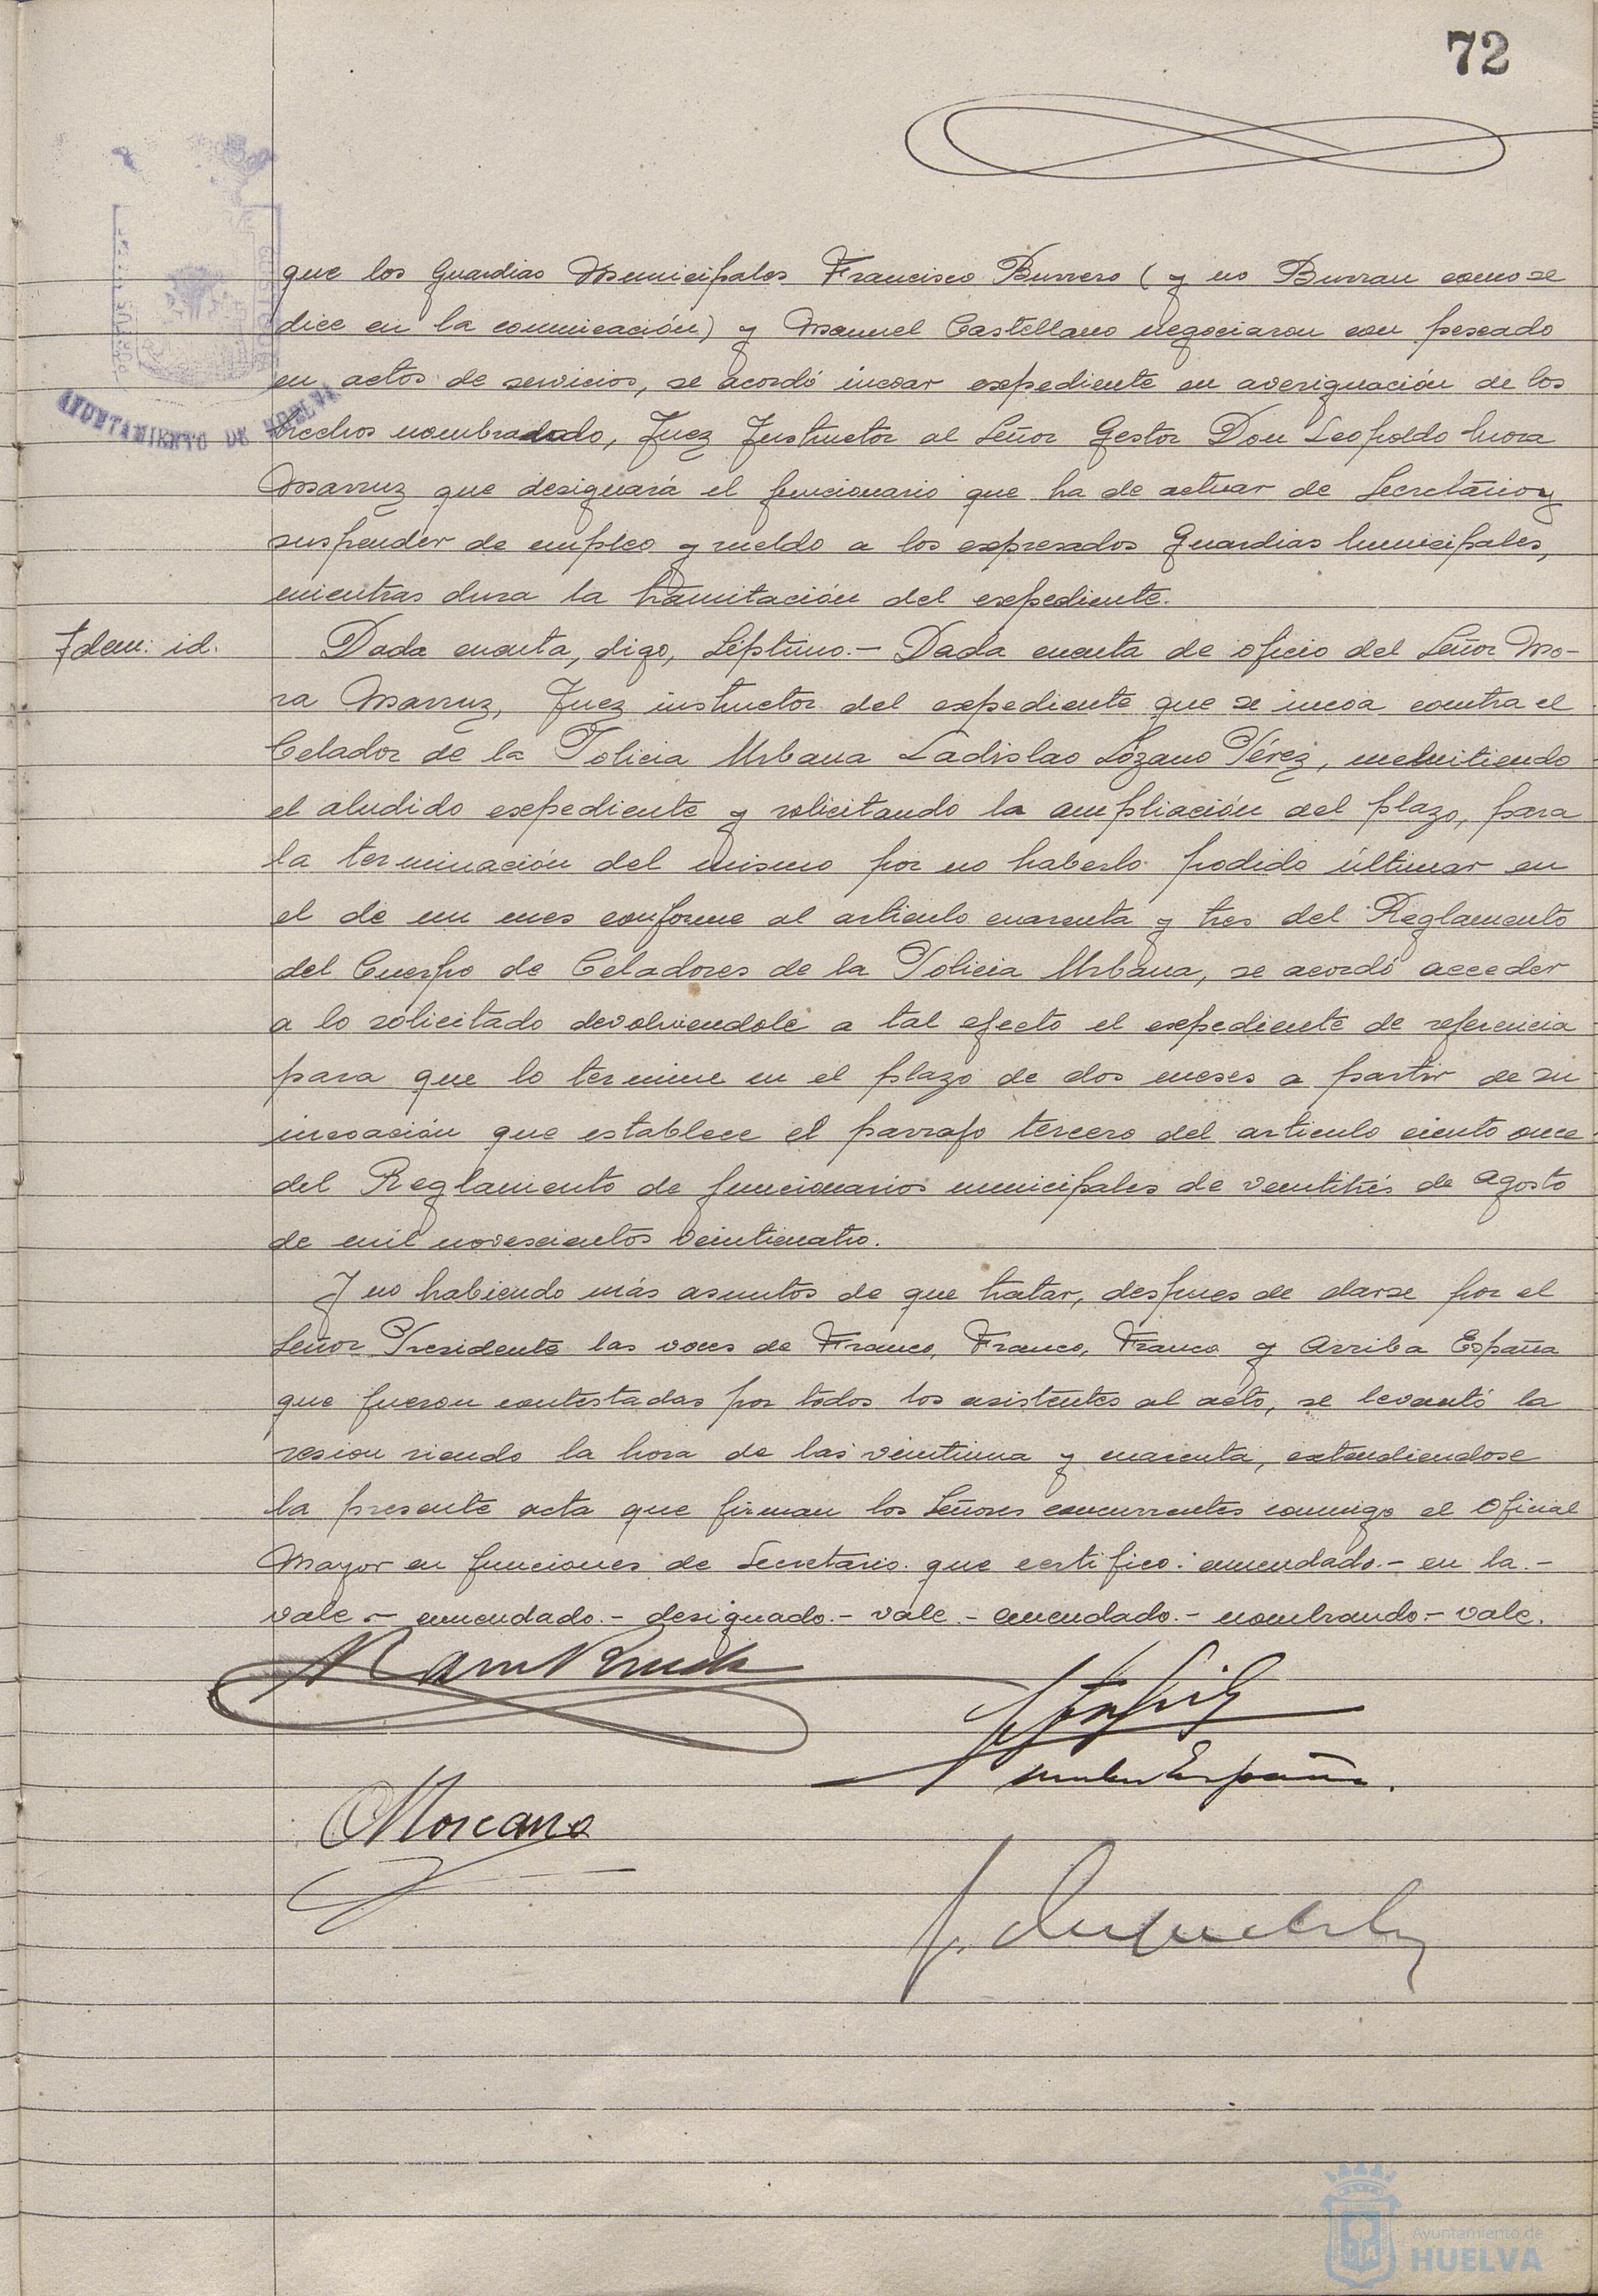 72
que los Guardias Municipales Francisco Burrero (y no Burran como se
dice en la comunicación) y Manuel Castellano negociaron con pescado
en actos de servicios, se acordó incoar expediente en averiguación de los
AYUNTAMIENTO DE HUELVA
hechos nombrando, Juez Instructor al Señor Gestor Don Leopoldo Mora
Marruz que designará el funcionario que ha de actuar de Secretario y
suspender de empleo y sueldo a los expresados Guardias Municipales,
mientras dura la tramitación del expediente.
Idem: id.
Dada cuenta, digo, Séptimo.- Dada cuenta de oficio del Señor Mo-
ra Marruz, Juez instructor del expediente que se incoa contra el
Celador de la Policia Urbana Ladislao Lozano Pérez,
el aludido expediente y solicitando la ampliación del plazo, para
la terminación del mismo por no haberlo podido últimar en
el de un mes conforme al articulo cuarenta y tres del Reglamento
del Cuerpo de Celadores de la Policia Urbana, se acordó acceder
a lo solicitado devolviendole a tal efecto el expediente de referencia
para que lo termine en el plazo de dos meses a partir de su
incoación que establece el parrafo tercero del articulo ciento once
del Reglamento de funcionarios municipales de veintitrés de Agosto
de mil novescientos veinticuatro.
Y no habiendo más asuntos de que tratar, despues de darse por el
Señor Presidente las voces de Franco, Franco, Franco y Arriba España
que fueron contestadas por todos los asistentes al acto, se levantó la
sesion siendo la hora de las veintiuna y cuarenta, extendiendose
la presente acta que firman los Señores concurrentes conmigo el Oficial
Mayor en funciones de Secretario. que certifico. enmendado.- en la.-
vale.- enmendado.- designado.- vale.- enmendado.- nombrando.- vale.
Morcano
Ayuntamiento de
HUELVA